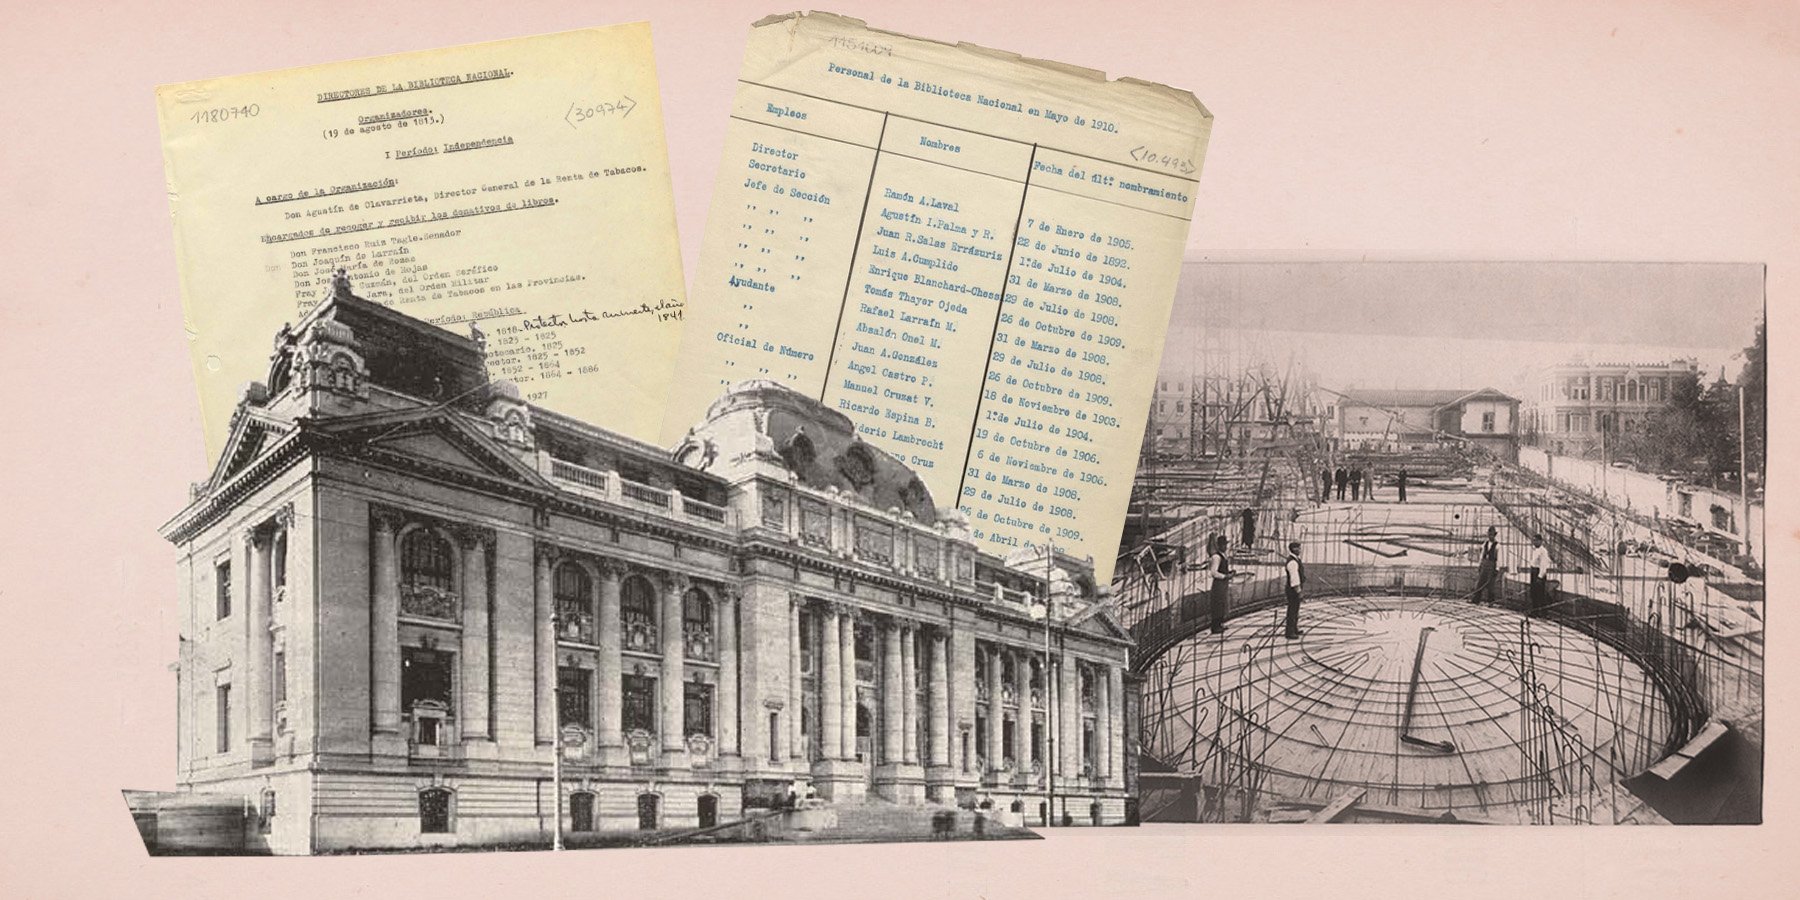 1180740
DIRECTORES DE LA BIBLIOTECA NACIONAL.
<30974>
Organizadores.
(19 de agosto de 1813.)
I Período: Independencia
A cargo de la Organización:
Don Agustín de Olavarrieta, Director General de la Renta de Tabacos.
Encargados de recoger y recibir los donativos de libros.
Don Francisco Ruiz Tagle.Senador
Don Joaquín de Larraín
Don José María de Rozas
Don José Antonio de Rojas
Fray Guzmán, del Orden Seráfico
Fray Jara, del Orden Militar
de Renta de Tabacos en las Provincias.
Período: República
1818- Protector hasta
1841.
1823 - 1825
1825
1825 - 1852
1852 - 1864
1864 - 1886
1927
Personal de la Biblioteca Nacional en Mayo de 1910.
<10.493>
Empleos
Nombres
Fecha del últ.º nombramiento
Director
Secretario
Jefe de Sección
,, ,, ,,
,, ,, ,,
,, ,, ,,
,, ,, ,,
Ayudante
,,
,,
Oficial de Número
,, ,, ,,
,,
Ramón A.Laval
Agustín I.Palma y R.
Juan R.Salas Errázuriz
Luis A.Cumplido
Enrique Blanchard-Chessi
Tomás Thayer Ojeda
Rafael Larraín M.
Absalón Onel M.
Juan A.González
Angel Castro P.
Manuel Cruzat V.
Ricardo Espina B.
Lambrecht
Cruz
7 de Enero de 1905.
22 de Junio de 1892.
1ºde Julio de 1904.
31 de Marzo de 1908.
29 de Julio de 1908.
26 de Octubre de 1909.
31 de Marzo de 1908.
29 de Julio de 1908.
26 de Octubre de 1909.
18 de Noviembre de 1903.
1ºde Julio de 1904.
19 de Octubre de 1906.
6 de Noviembre de 1906.
31 de Marzo de 1908.
29 de Julio de 1908.
26 de Octubre de 1909.
de Abril de